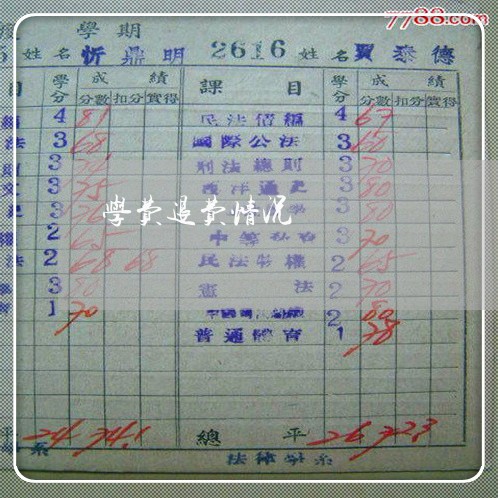 7788.com
學期
姓名 忻鼎明 2616 姓名 賈泰德
目 學分 成績 課目 學分 成績
分數 扣分 實得 分數 扣分 實得
4 81 民法債編 4 67
法 3 68 國際公法 3 60
3 刑法總則 3 70
3 75 西洋通史 3 80
3 3 80
2 65 3 70
法 2 68 68 民法物權 2 65
3 80 憲法 2 70
1 70 2 80
普通體育 1 78
學費退費情况
平 24 74.1 總平 26 72.3
系 法律學系